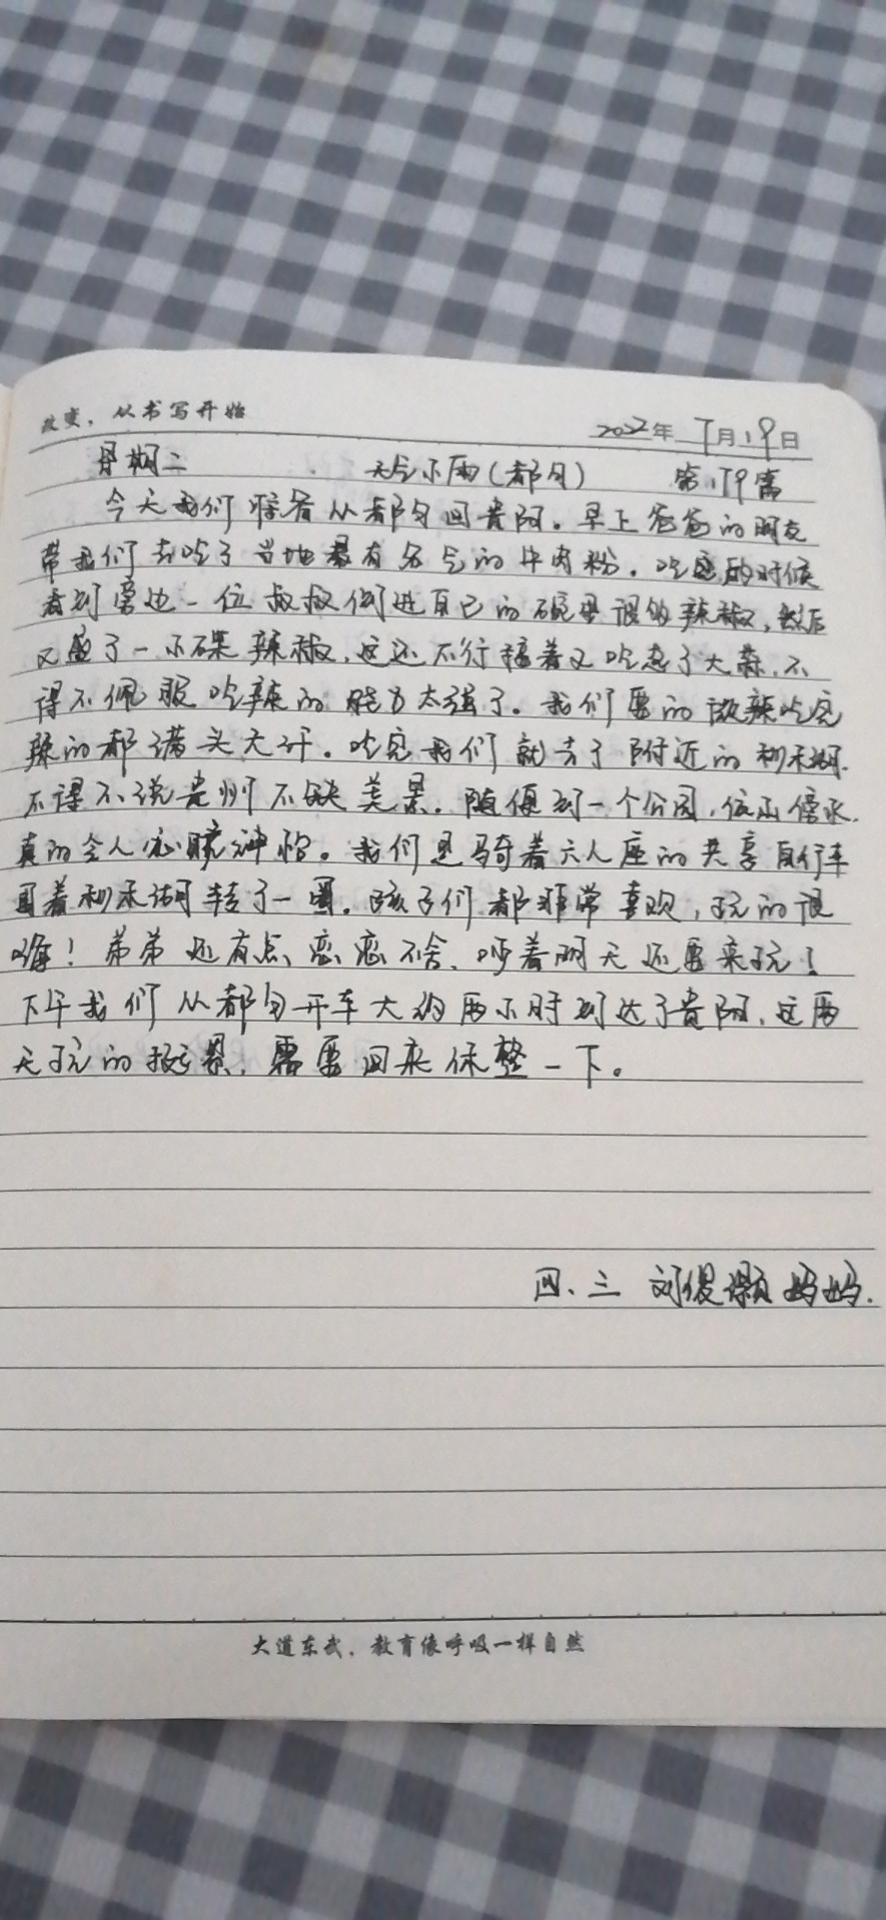 改变，从书写开始
2022年 7月19日
星期二 天气小雨(都匀) 第179篇
今天我们准备从都匀回贵阳。早上爸爸的朋友
带我们去吃了当地最有名气的牛肉粉。吃的时候
看到旁边一位叔叔倒进自己的碗里很多辣椒，然后
又盛了一小碟辣椒，这还不行接着又吃起了大蒜，不
得不佩服吃辣的能力太强了。我们要的微辣吃完
辣的都满头大汗。吃完我们就去了附近的剑禾湖.
不得不说贵州不缺美景。随便到一个公园，依山傍水.
真的令人心旷神怡。我们是骑着六人座的共享自行车
围着剑禾湖转了一圈。孩子们都非常喜欢，玩的很
嗨！弟弟还有点恋恋不舍、呼着明天还要来玩！
下午我们从都匀开车大约两小时到达了贵阳，这两
天玩的挺累，需要回来休整一下。
四、三 刘 妈妈.
大道东武，教育像呼吸一样自然